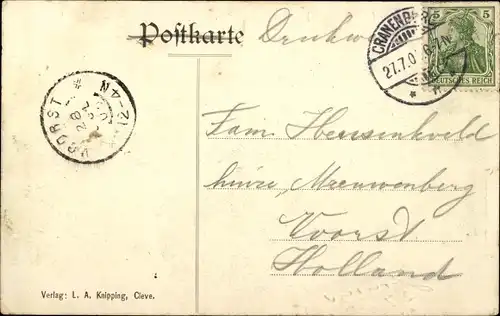 Postkarte
CRANENBURG
27.7.0
5 5
DEUTSCHES REICH
VOORST
12-4N
28
Fam Heusinkveld
huize Meeuwenberg
Voorst
Holland
Verlag: L. A. Knipping, Cleve.